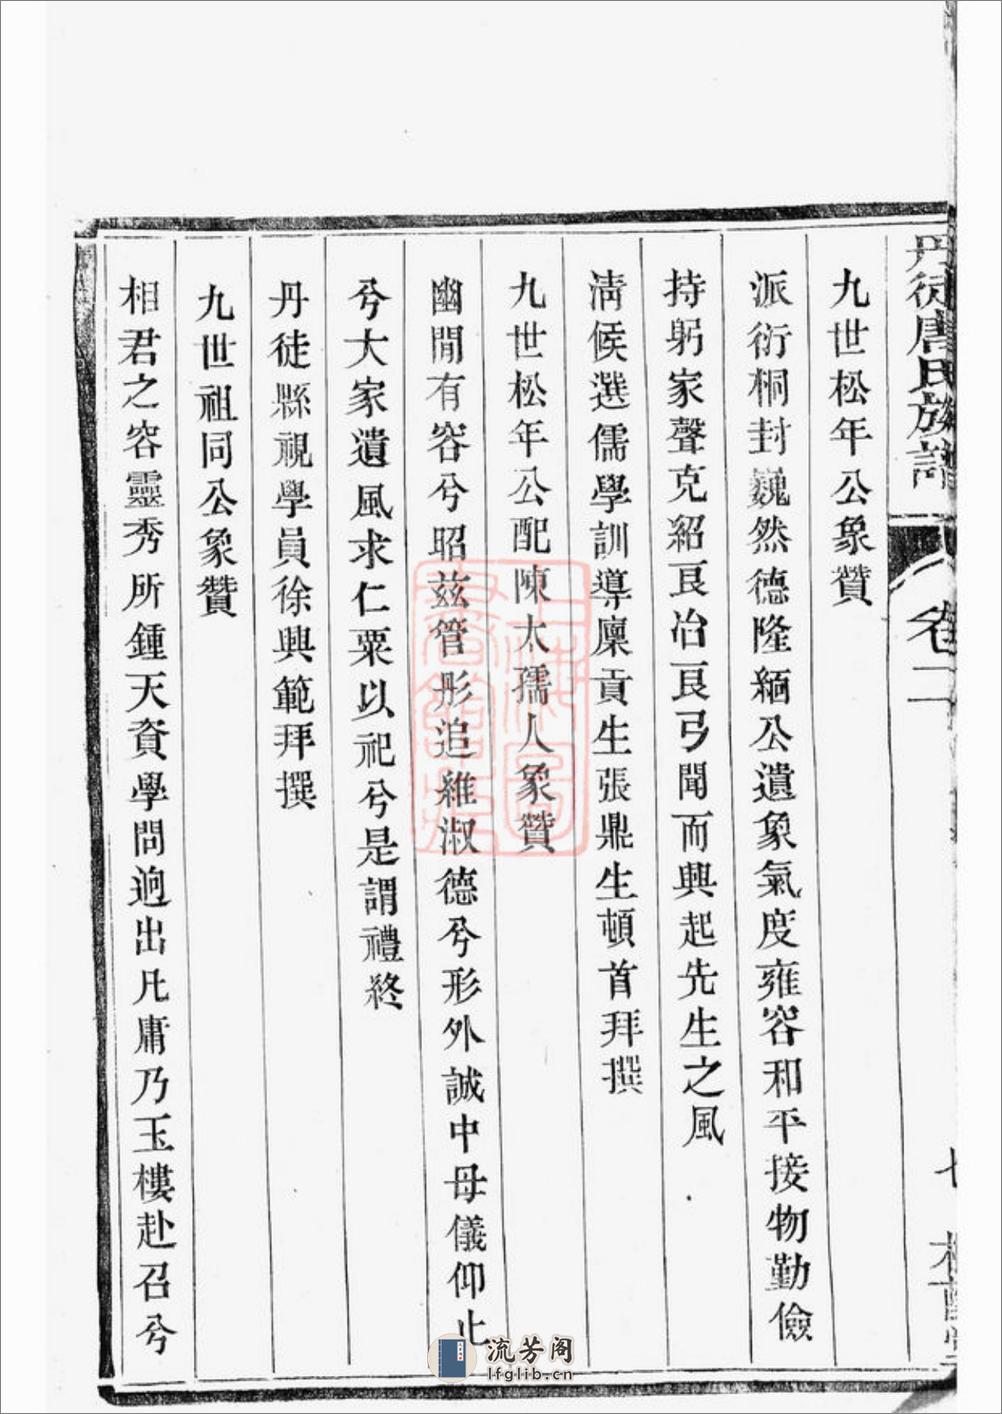 丹徒唐氏族譜
卷二
七
九世松年公象贊
派衍桐封巍然德隆緬公遺象氣度雍容和平接物勤儉
持躬家聲克紹良冶良弓聞而興起先生之風
清候選儒學訓導廩貢生張鼎生頓首拜撰
九世松年公配陳太孺人象贊
幽閒有容兮昭茲管彤追維淑德兮形外誠中母儀仰止
兮大家遺風求仁粟以祀兮是謂禮終
丹徒縣視學員徐興範拜撰
九世祖同公象贊
相君之容靈秀所鍾天資學問逈出凡庸乃玉樓赴召兮
上海圖書館藏
流芳阁
lfglib.cn